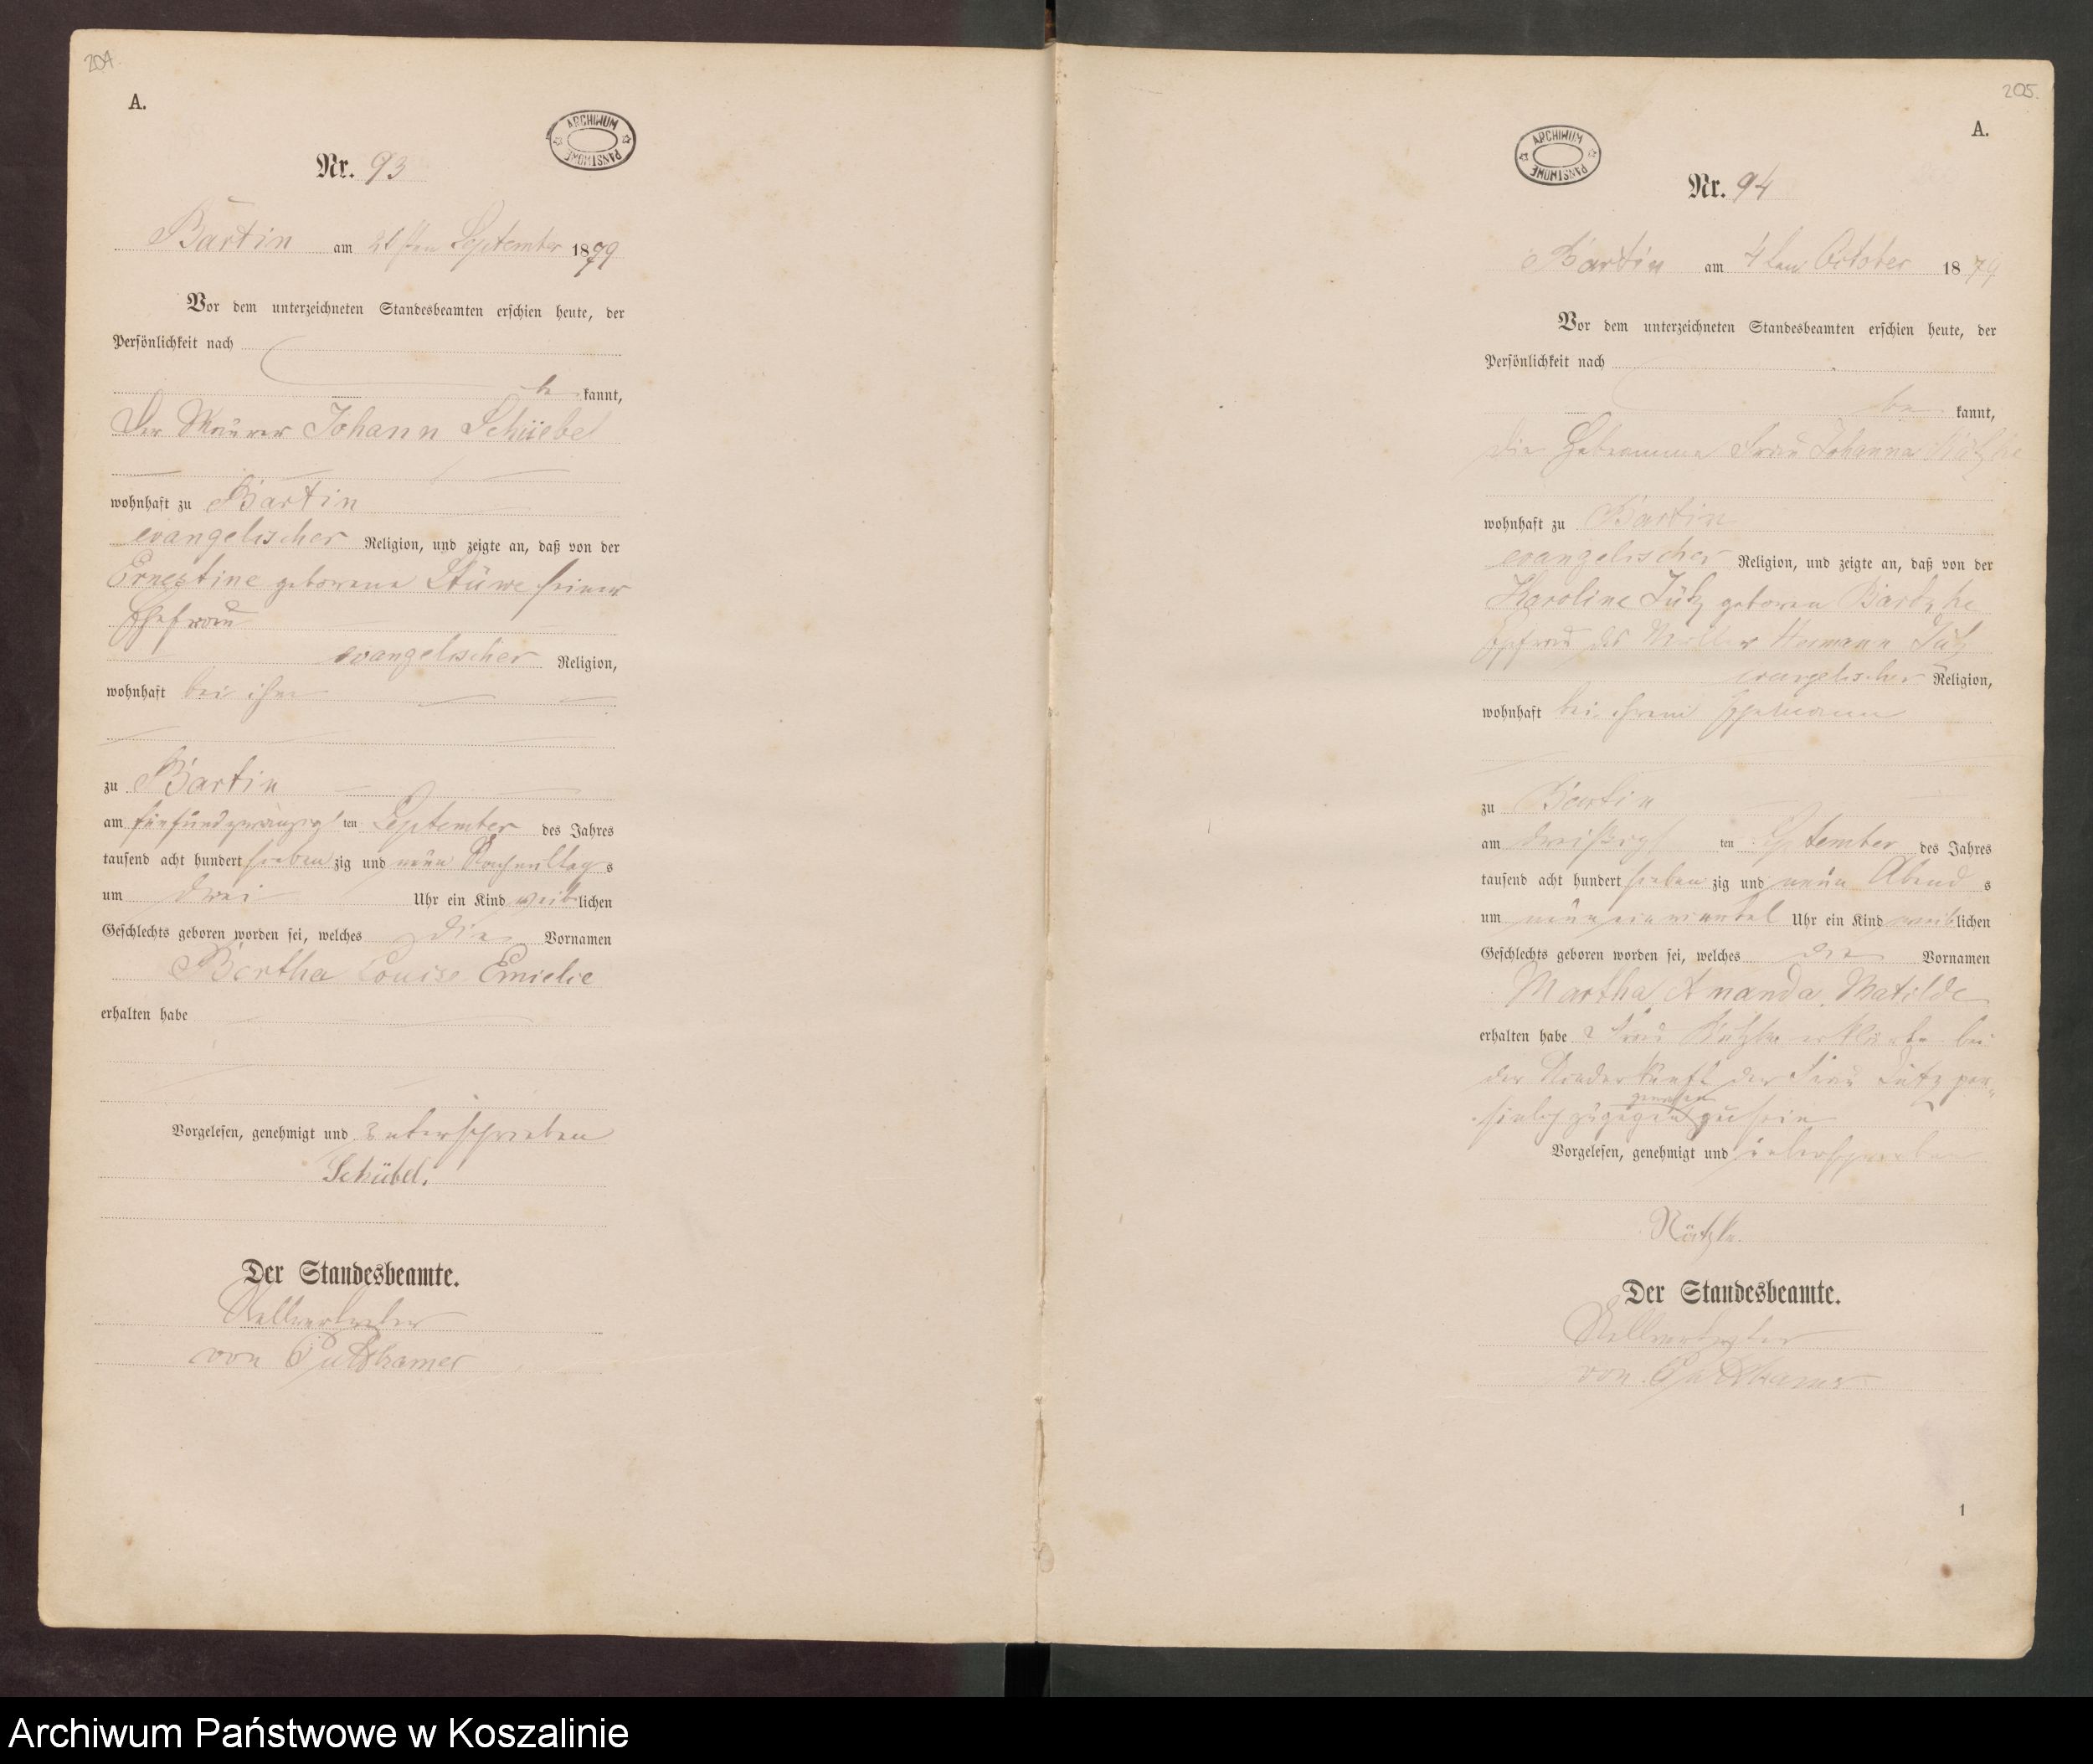 204.
A.
ARCHIWUM PAŃSTWOWE
Nr. 93
Bartin am September 1879
Vor dem unterzeichneten Standesbeamten erschien heute, der
Persönlichkeit nach
be kannt,
Der Maurer Johann Schübel
wohnhaft zu Bartin
evangelischer Religion, und zeigte an, daß von der
Ernestine geborene Stüwe seiner
Ehefrau
evangelischer Religion,
wohnhaft bei ihm
zu Bartin
am fünfundzwanzig ten September des Jahres
tausend acht hundert sieben zig und neun Nachmittag s
um drei Uhr ein Kind weiblichen
Geschlechts geboren worden sei, welches die Vornamen
Bertha Louise Emielie
erhalten habe
Vorgelesen, genehmigt und unterschrieben
Schübel.
Der Standesbeamte.
Stellvertreter
von Puttkamer
205.
A.
ARCHIWUM PAŃSTWOWE
Nr. 94
Bartin am 4ten October 1879
Vor dem unterzeichneten Standesbeamten erschien heute, der
Persönlichkeit nach
be kannt,
die Hebamme Frau Johanna
wohnhaft zu Bartin
evangelischer Religion, und zeigte an, daß von der
Karoline geboren
Ehefrau des Hermann
evangelischer Religion,
wohnhaft bei ihrem Ehemann
zu Bartin
am dreißig ten September des Jahres
tausend acht hundert sieben zig und neun Abend s
um neun ein viertel Uhr ein Kind weiblichen
Geschlechts geboren worden sei, welches die Vornamen
Martha, Amanda, Matilde
erhalten habe Frau erklärte bei
der Niederkunft der Frau per-
sönlich zugegen gewesen zu sein
Vorgelesen, genehmigt und unterschrieben
Der Standesbeamte.
Stellvertreter
von Puttkamer
1
Archiwum Państwowe w Koszalinie